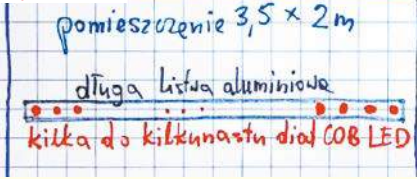 pomieszczenie 3,5 × 2 m
długa listwa aluminiowa
kilka do kilkunastu diod COB LED